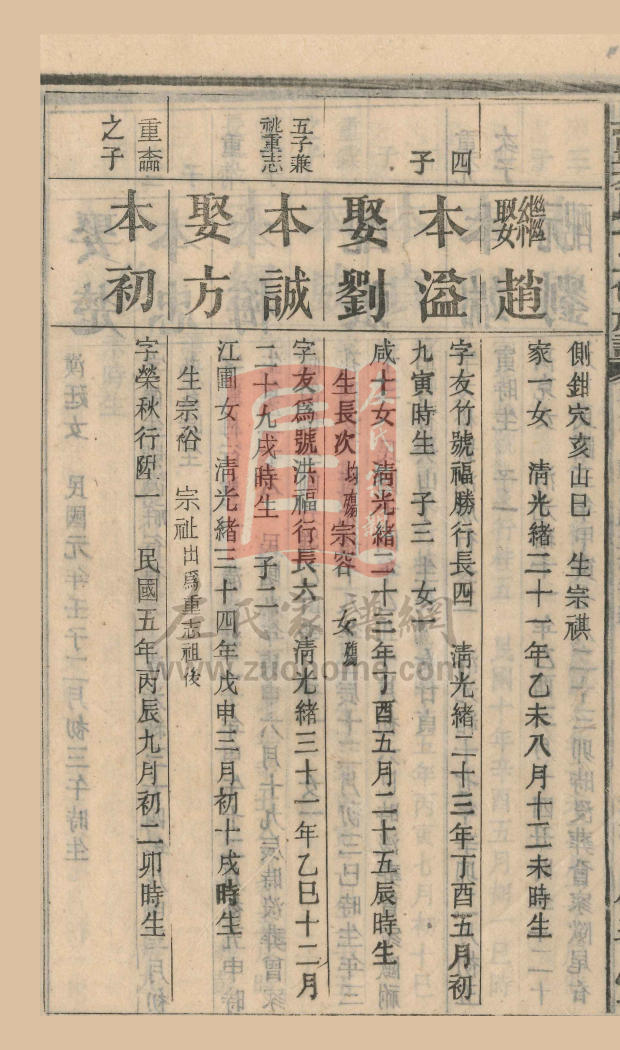 側鉗穴亥山巳　生宗祺
繼娶趙
家一女　清光緒二十一年乙未八月十二未時生
四子
本溢
字友竹號福勝行長四　清光緒二十三年丁酉五月初
九寅時生　子三　女一
娶劉
咸十女　清光緒二十三年丁酉五月二十五辰時生
生長次均殤宗容　女殤
五子兼祧重志
本誠
字友爲號洪福行長六　清光緒三十一年乙巳十二月
二十九戌時生　子二
娶方
江圃女　清光緒三十四年戊申三月初十戌時生
生宗裕　宗祉出爲重志祖後
重論之子
本初
字榮秋行陞一　民國五年丙辰九月初二卯時生
左氏家譜網
www.zuohome.com